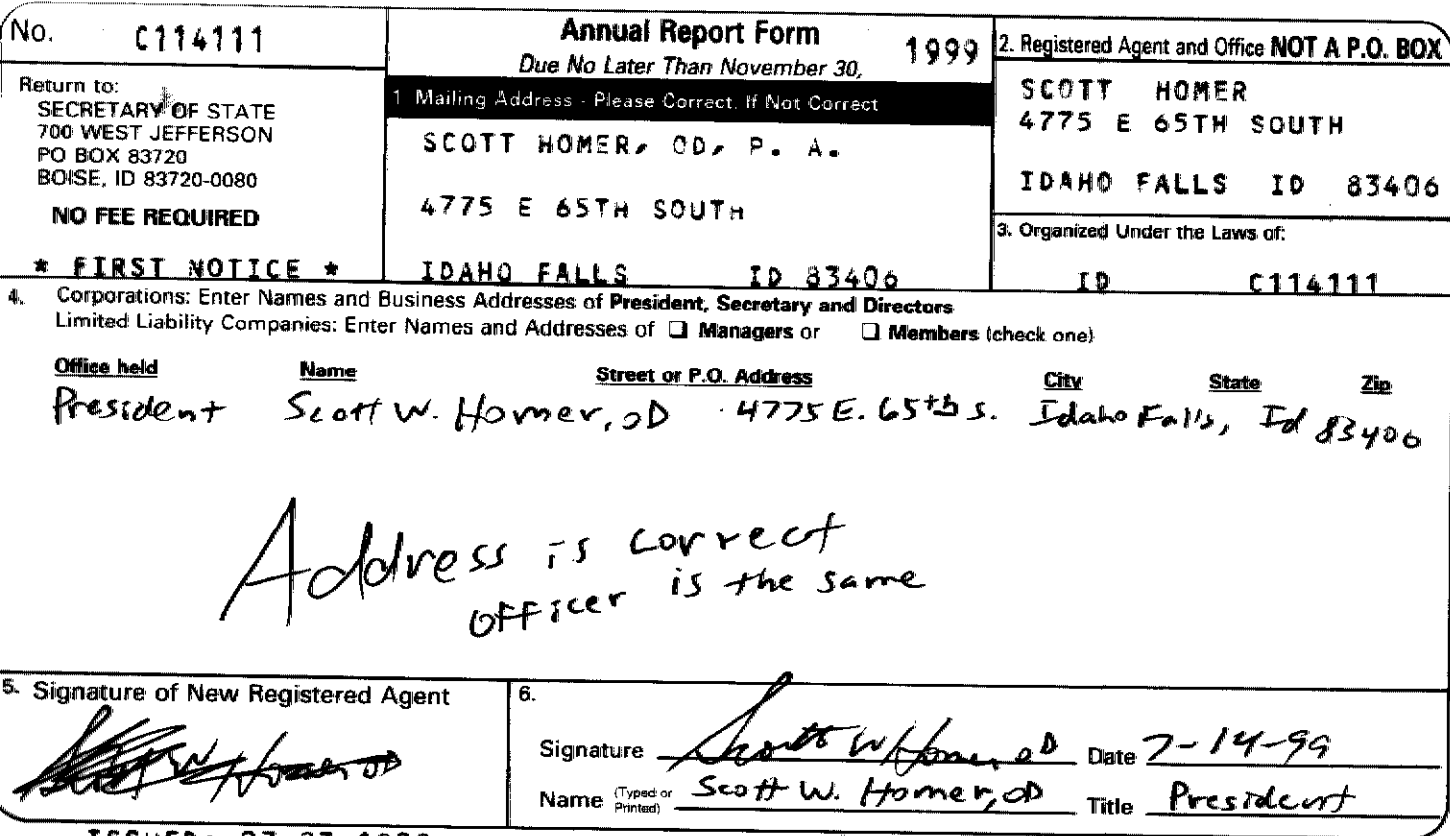 No. C114111
Return to:
SECRETARY OF STATE
700 WEST JEFFERSON
PO BOX 83720
BOISE, ID 83720-0080
NO FEE REQUIRED
* FIRST NOTICE *
Annual Report Form 1999
Due No Later Than November 30,
1 Mailing Address - Please Correct, If Not Correct
SCOTT HOMER, OD, P. A.
4775 E 65TH SOUTH
IDAHO FALLS ID 83406
2. Registered Agent and Office NOT A P.O. BOX
SCOTT HOMER
4775 E 65TH SOUTH
IDAHO FALLS ID 83406
3. Organized Under the Laws of:
ID C114111
4. Corporations: Enter Names and Business Addresses of President, Secretary and Directors
Limited Liability Companies: Enter Names and Addresses of ❑ Managers or ❑ Members (check one)
Office held Name Street or P.O. Address City State Zip
President Scott W. Homer, OD 4775 E. 65th S. Idaho Falls, Id 83406
Address is correct
officer is the same
5. Signature of New Registered Agent
W Homer OD
6.
Signature Scott W Homer, OD Date 7-14-99
Name (Typed or Printed) Scott W. Homer, OD Title President